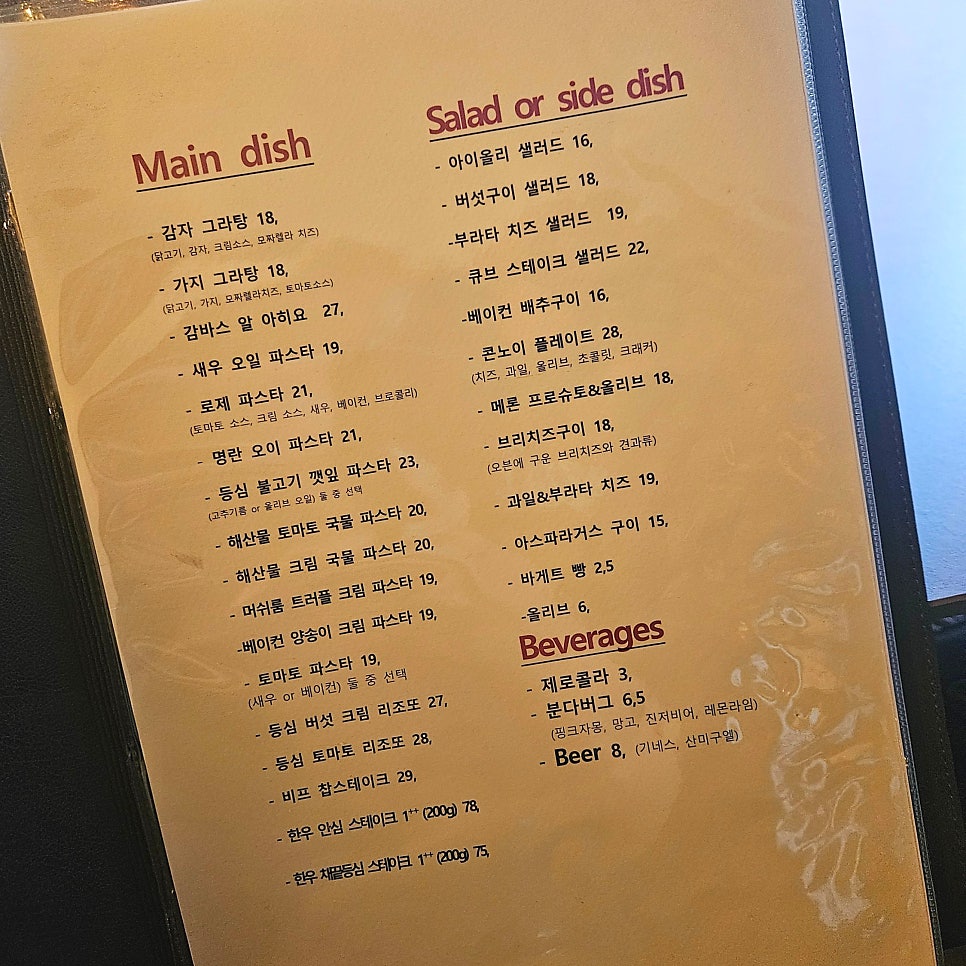 Main dish
- 감자 그라탕 18,
(닭고기, 감자, 크림소스, 모짜렐라 치즈)
- 가지 그라탕 18,
(닭고기, 가지, 모짜렐라치즈, 토마토소스)
- 감바스 알 아히요 27,
- 새우 오일 파스타 19,
- 로제 파스타 21,
(토마토 소스, 크림 소스, 새우, 베이컨, 브로콜리)
- 명란 오이 파스타 21,
- 등심 불고기 깻잎 파스타 23,
(고추기름 or 올리브 오일) 둘 중 선택
- 해산물 토마토 국물 파스타 20,
- 해산물 크림 국물 파스타 20,
- 머쉬룸 트러플 크림 파스타 19,
-베이컨 양송이 크림 파스타 19,
- 토마토 파스타 19,
(새우 or 베이컨) 둘 중 선택
- 등심 버섯 크림 리조또 27,
- 등심 토마토 리조또 28,
- 비프 찹스테이크 29,
- 한우 안심 스테이크 1++ (200g) 78,
- 한우 채끝등심 스테이크 1++ (200g) 75,
Salad or side dish
- 아이올리 샐러드 16,
- 버섯구이 샐러드 18,
-부라타 치즈 샐러드 19,
- 큐브 스테이크 샐러드 22,
-베이컨 배추구이 16,
- 콘노이 플레이트 28,
(치즈, 과일, 올리브, 초콜릿, 크래커)
- 메론 프로슈토&올리브 18,
- 브리치즈구이 18,
(오븐에 구운 브리치즈와 견과류)
- 과일&부라타 치즈 19,
- 아스파라거스 구이 15,
- 바게트 빵 2,5
-올리브 6,
Beverages
- 제로콜라 3,
- 분다버그 6,5
(핑크자몽, 망고, 진저비어, 레몬라임)
- Beer 8, (기네스, 산미구엘)